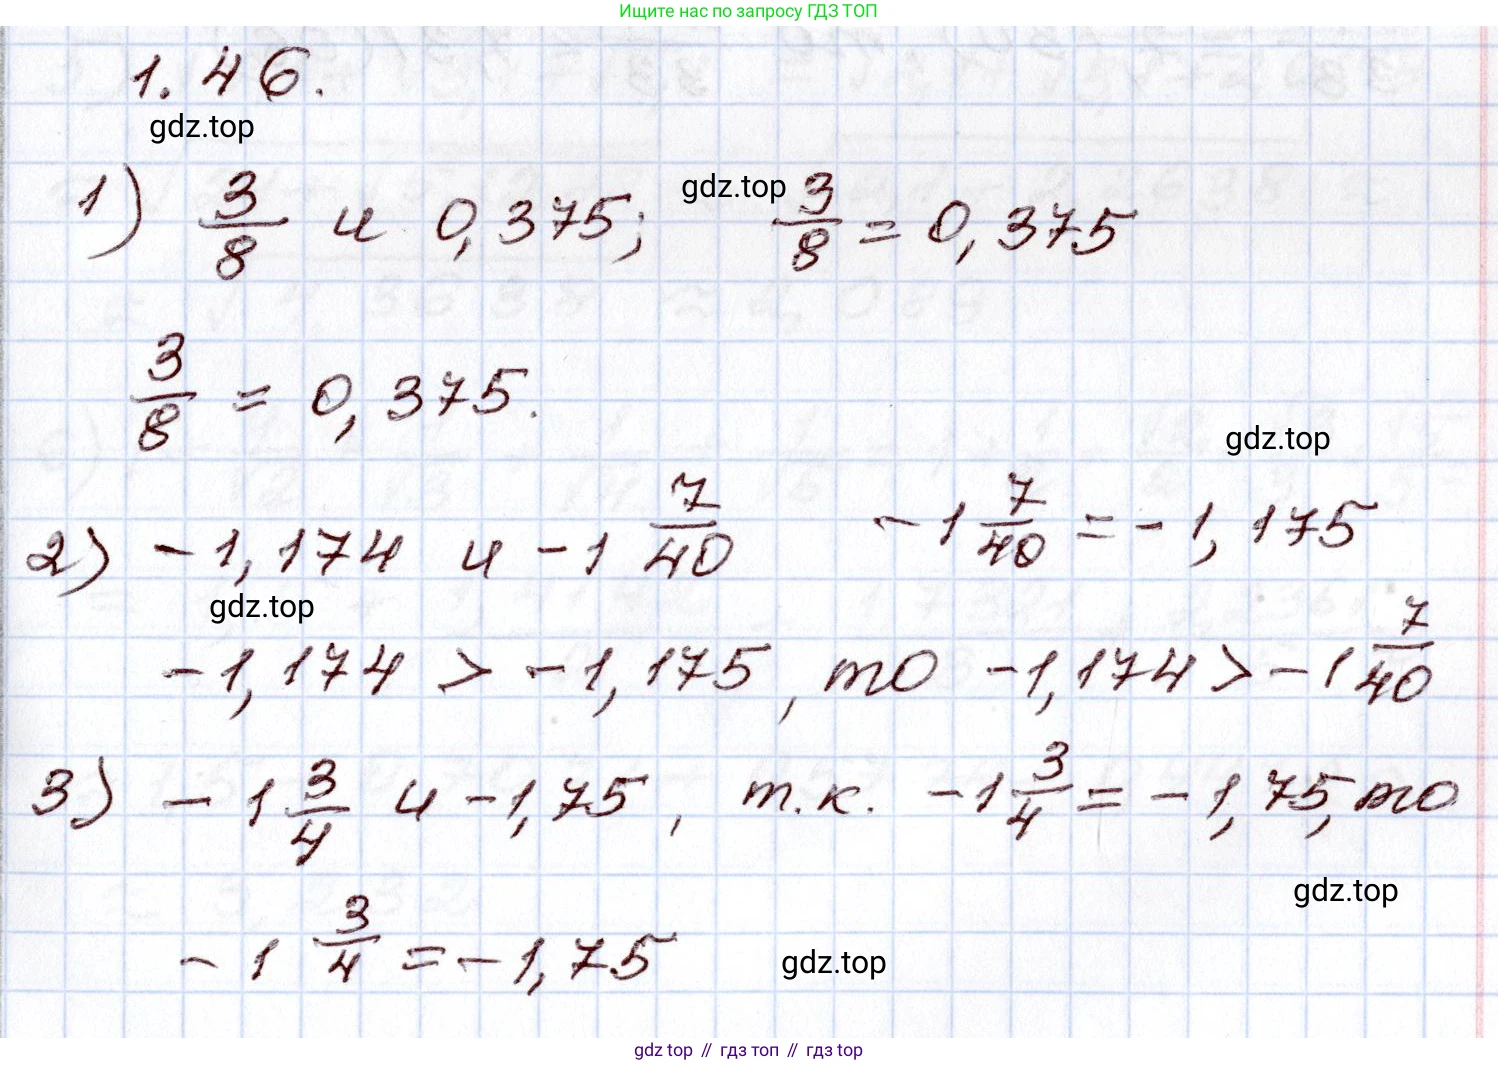 Ищите нас по запросу ГДЗ ТОП
1.46.
gdz.top
1) 3/8 и 0,375; gdz.top 3/8 = 0,375
3/8 = 0,375.
gdz.top
2) -1,174 и -1 7/40 -1 7/40 = -1,175
gdz.top
-1,174 > -1,175, то -1,174 > -1 7/40
3) -1 3/4 и -1,75, т.к. -1 3/4 = -1,75, то
gdz.top
-1 3/4 = -1,75 gdz.top
gdz top // гдз топ // гдз top